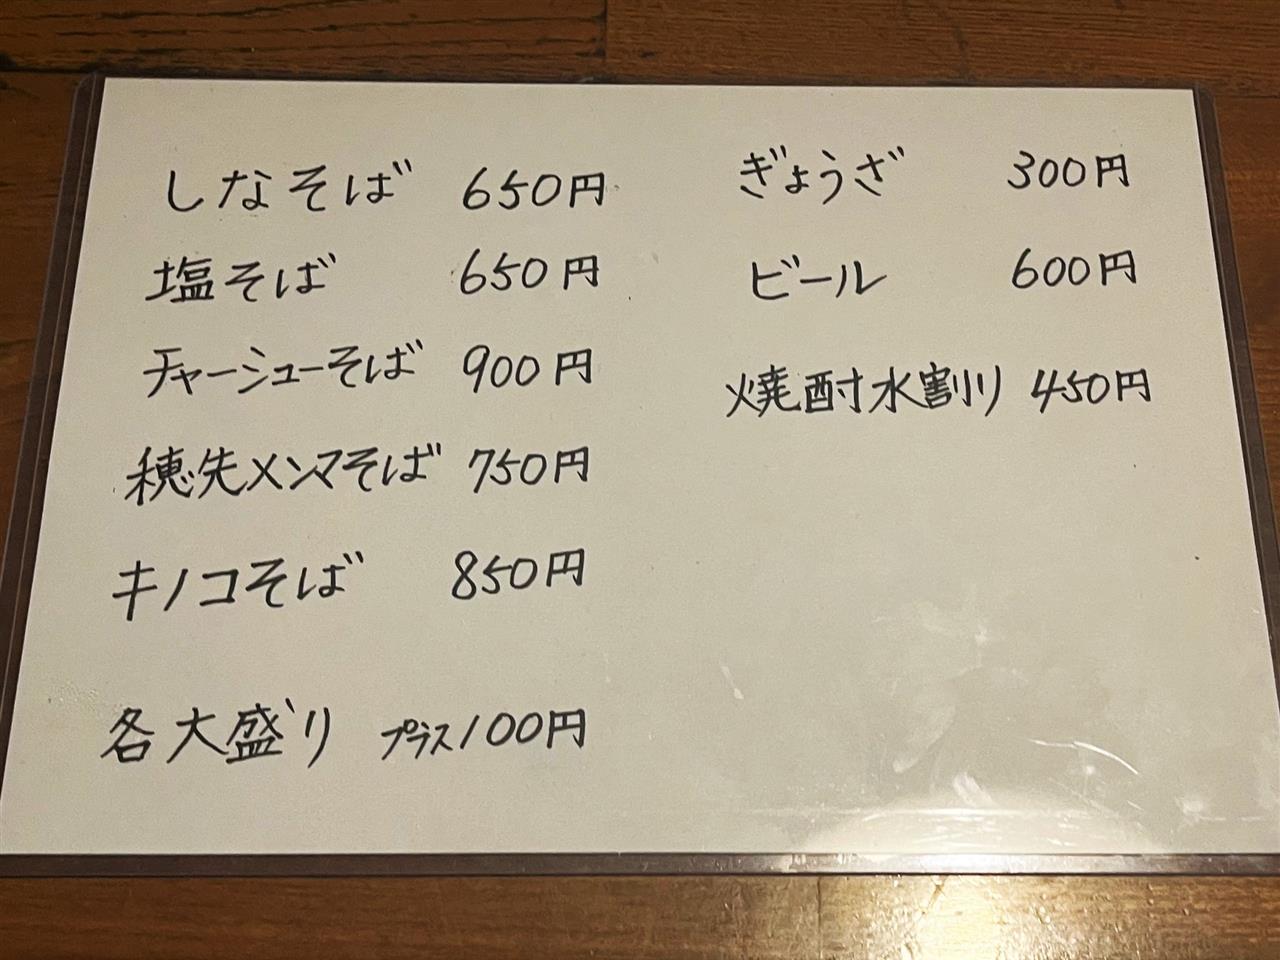 しなそば 650円
塩そば 650円
チャーシューそば 900円
穂先メンマそば 750円
キノコそば 850円
各大盛り プラス100円
ぎょうざ 300円
ビール 600円
焼酎水割り 450円